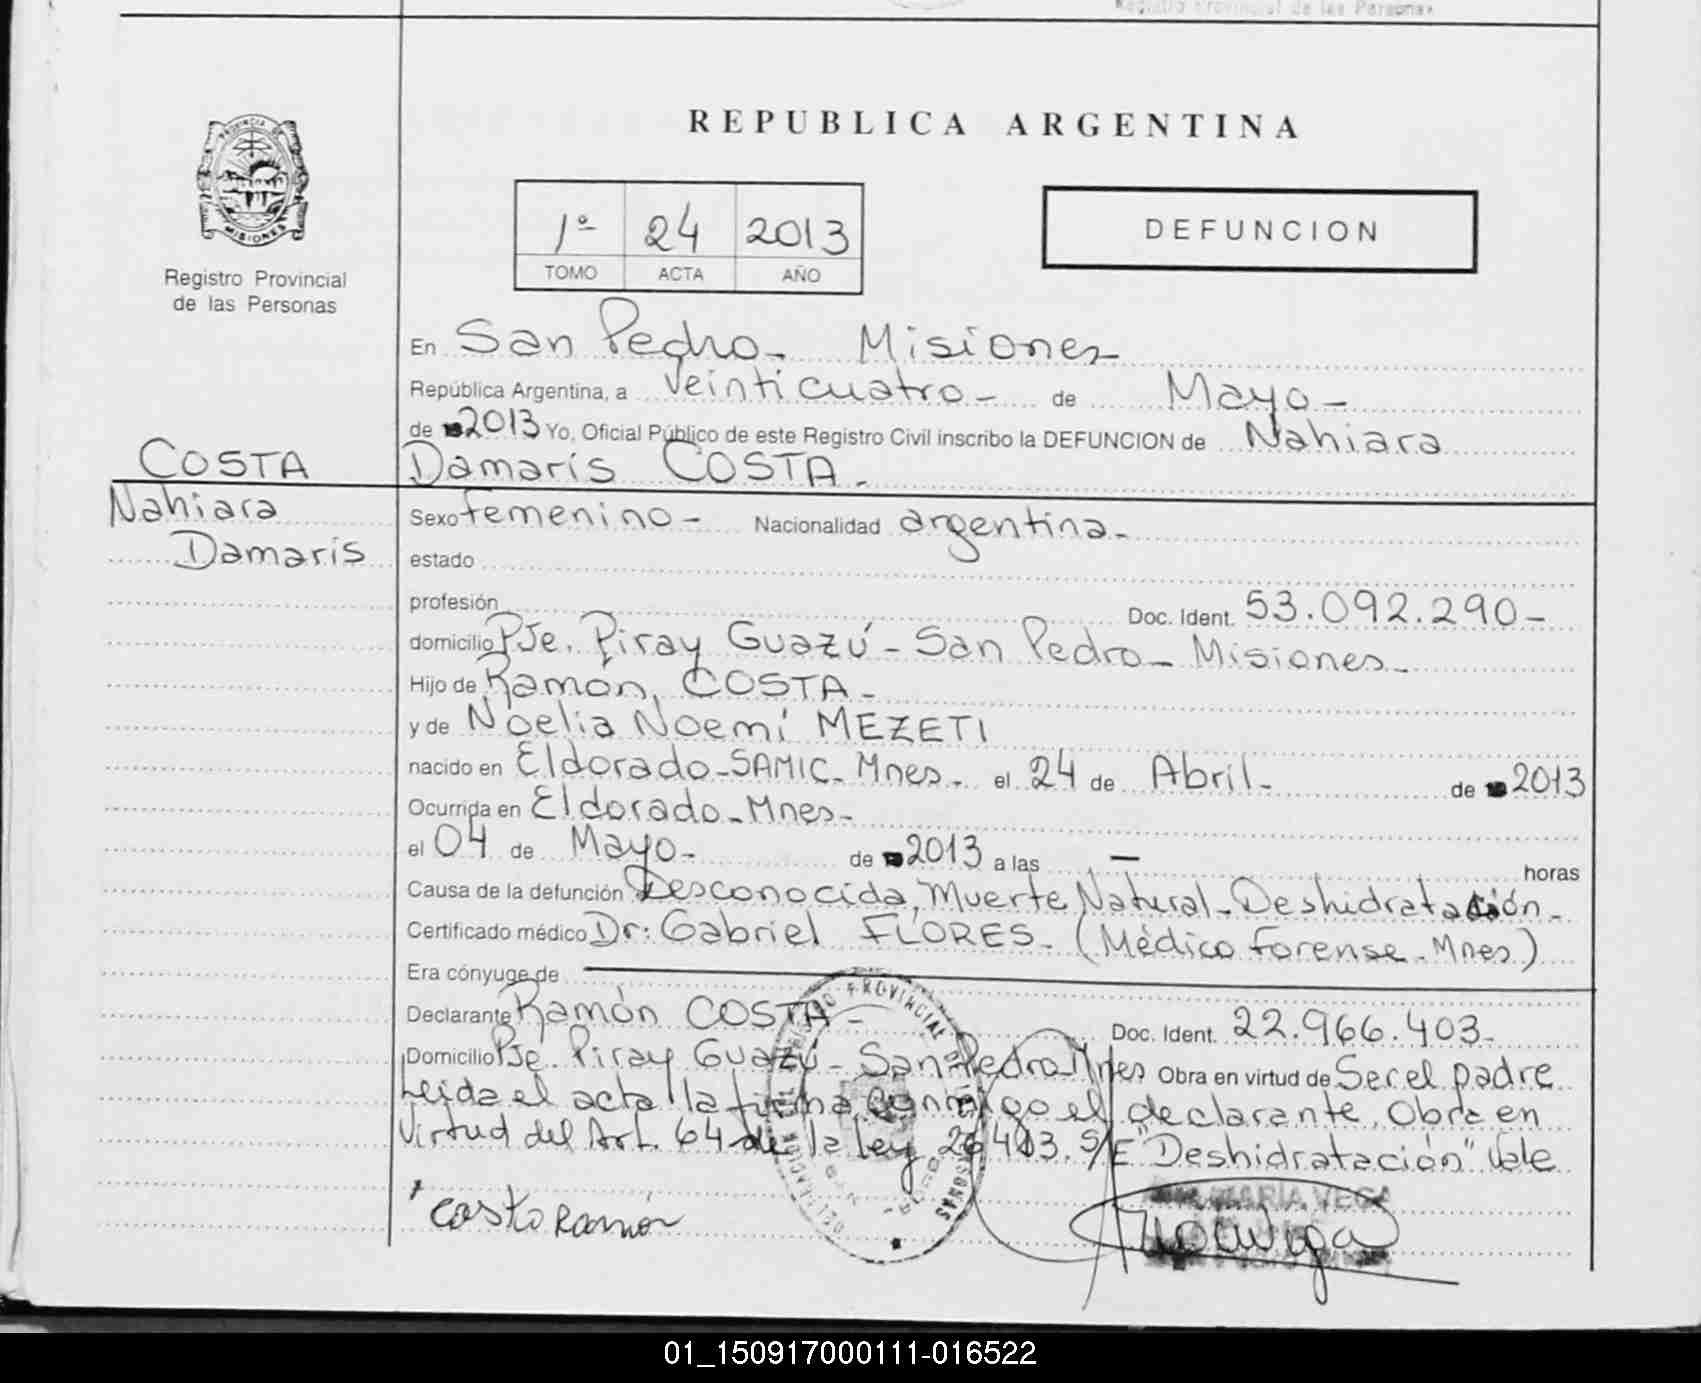 Registro Provincial de las Personas
REPUBLICA ARGENTINA
PROVINCIA DE
MISIONES
Registro Provincial
de las Personas
1º 24 2013
TOMO ACTA AÑO
DEFUNCION
En San Pedro - Misiones
República Argentina, a Veinticuatro - de Mayo -
de 2013 Yo, Oficial Público de este Registro Civil inscribo la DEFUNCION de Nahiara
Damaris COSTA.
COSTA
Nahiara
Damaris
Sexo femenino - Nacionalidad argentina -
estado
profesión Doc. Ident. 53.092.290 -
domicilio Pje. Piray Guazú - San Pedro - Misiones -
Hijo de Ramón, COSTA -
y de Noelia Noemí MEZETI
nacido en Eldorado - SAMIC - Mnes - el 24 de Abril - de 2013
Ocurrida en Eldorado - Mnes -
el 04 de Mayo - de 2013 a las — horas
Causa de la defunción Desconocida, Muerte Natural - Deshidratación -
Certificado médico Dr: Gabriel FLORES - (Médico Forense - Mnes)
Era cónyuge de
Declarante Ramón COSTA - Doc. Ident. 22.966.403 -
Domicilio Pje. Piray Guazú - San Pedro Mnes Obra en virtud de Ser el padre
Leida el acta la firma conmigo el declarante, Obra en
Virtud del Art. 64 de la ley 26413. S/E "Deshidratación" Vale
Costa Ramón
MARIA VEGA
01_150917000111-016522